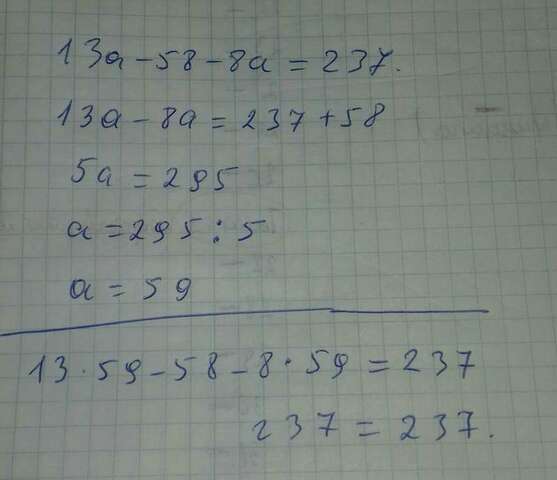 13a-58-8a=237.
13a-8a=237+58
5a=295
a=295:5
a=59
13·59-58-8·59=237
237=237.